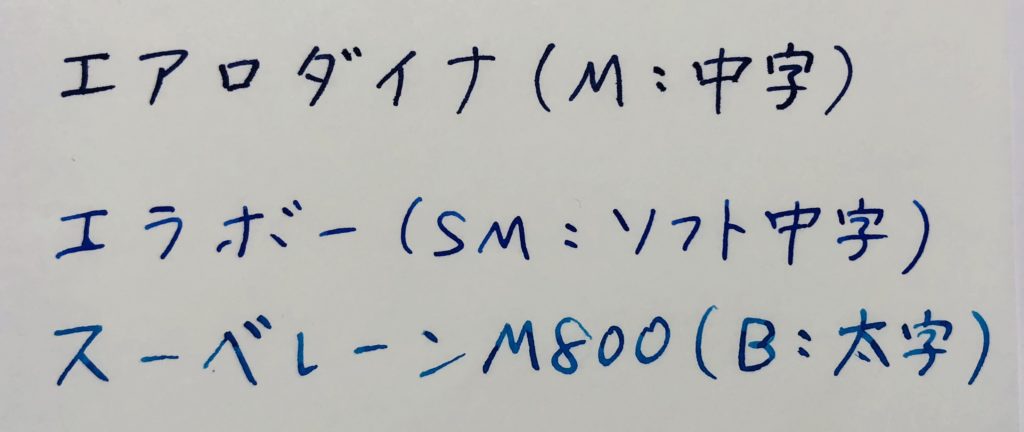 エアロダイナ(M:中字)
エラボー(SM:ソフト中字)
スーベレーンM800(B:太字)